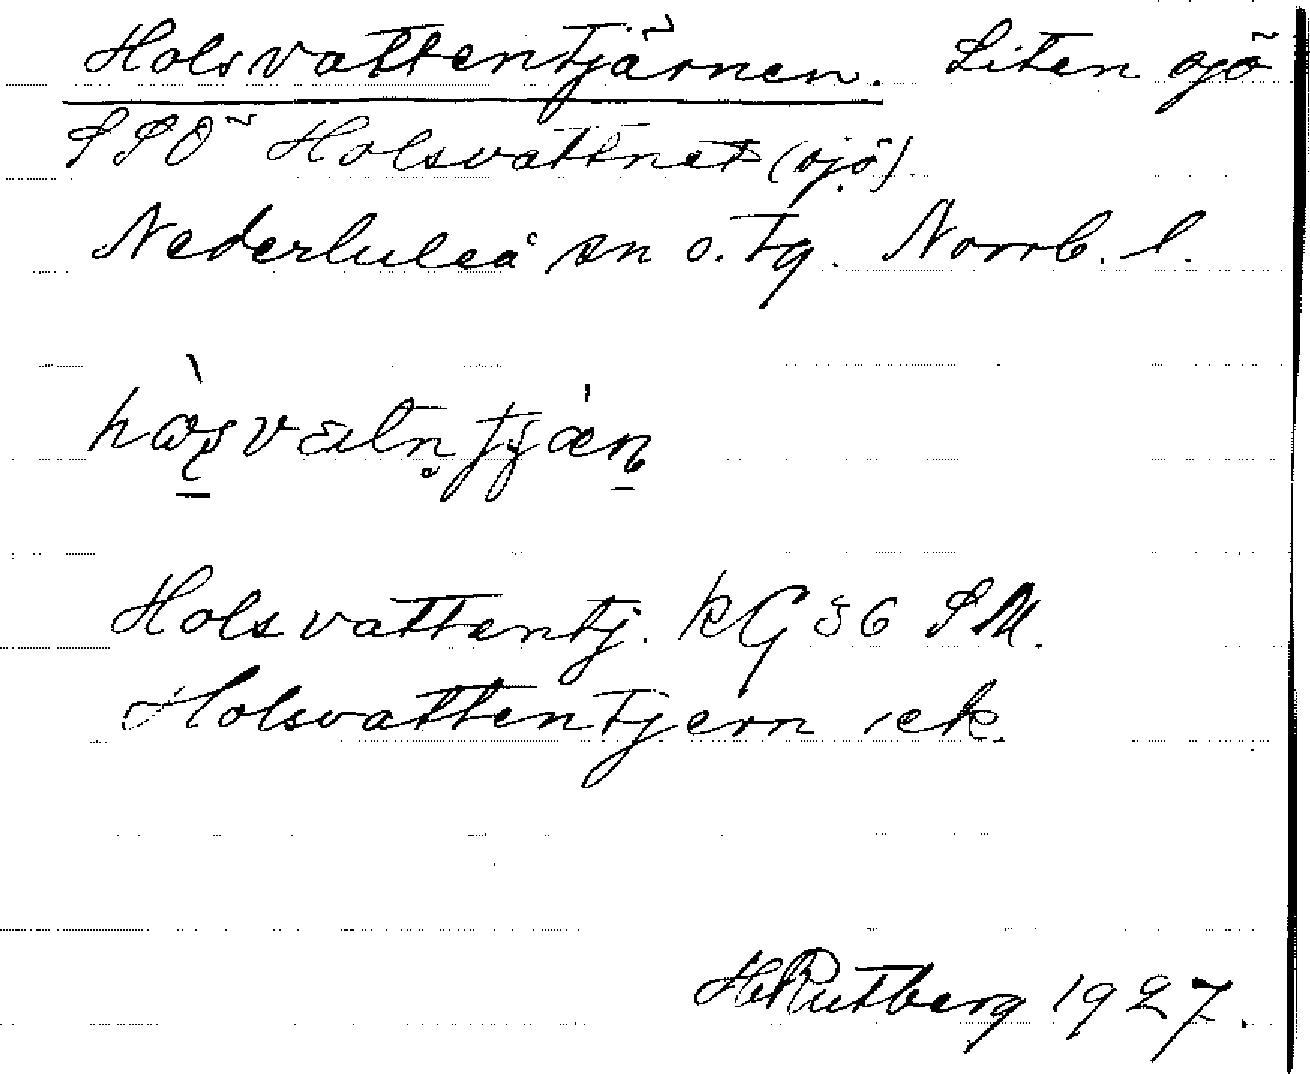 Holsvattentjärnen. Liten sjö
SSO Holsvattnet (sjö)
Nederluleå sn o. tg. Norrb. l.
Holsvattentj. KG 36 SM.
Holsvattentjern ek.
H Rutberg 1927.